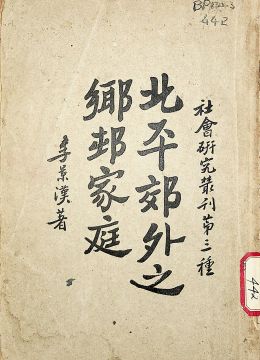 社會研究叢刊第三種
北平郊外之
鄉村家庭
李景漢著
442
442